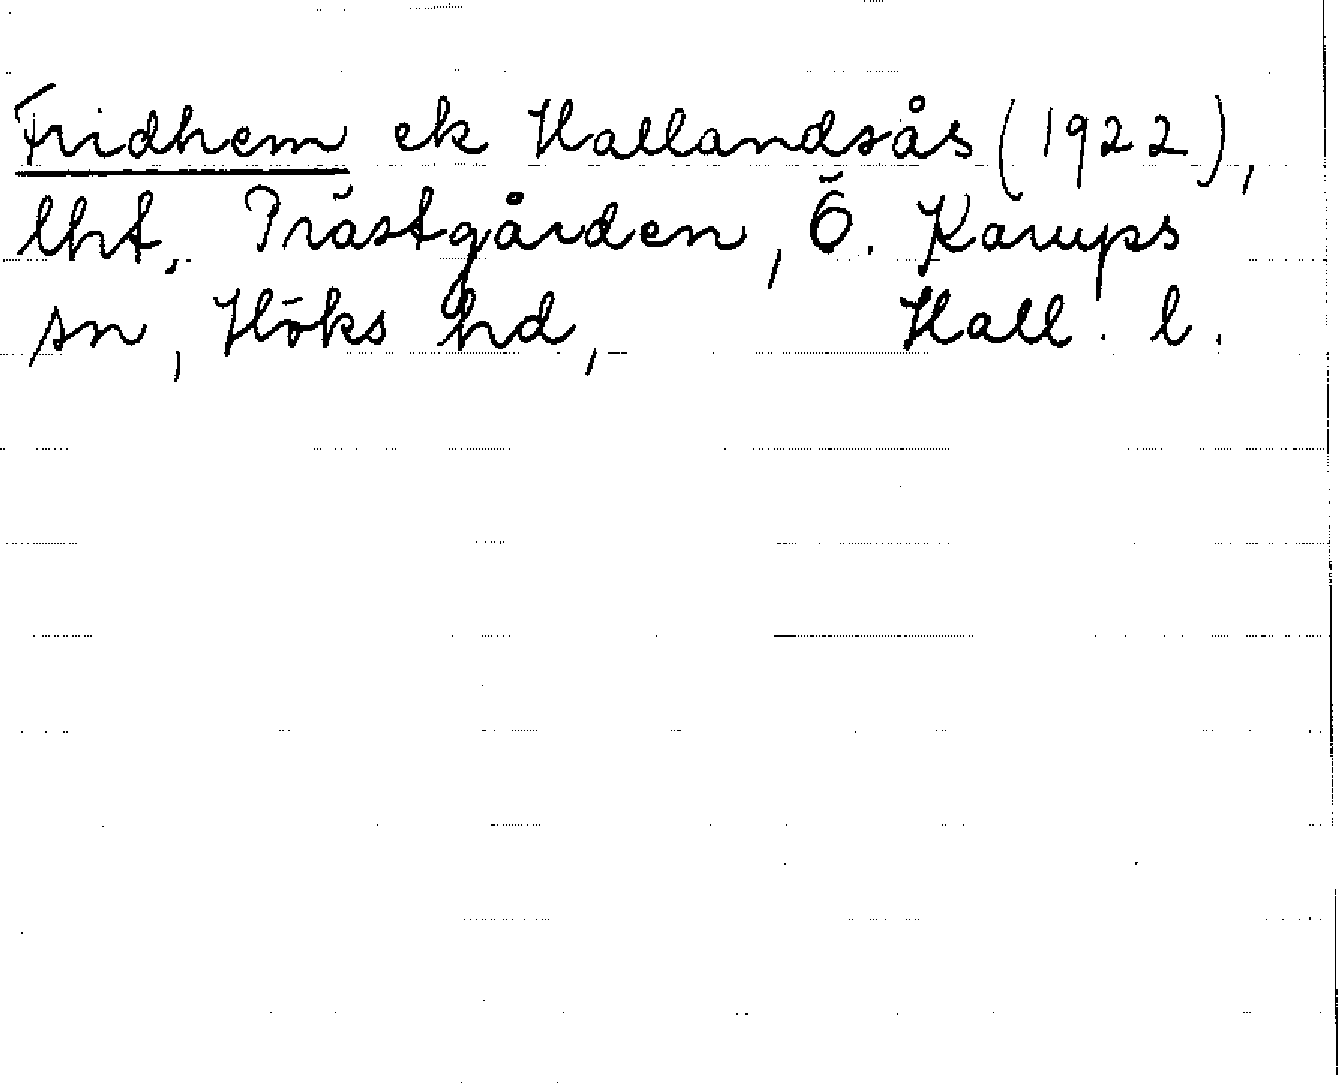 Fridhem ek Hallandsås (1922),
lht, Prästgården, Ö. Karups
sn, Höks hd, Hall. l.